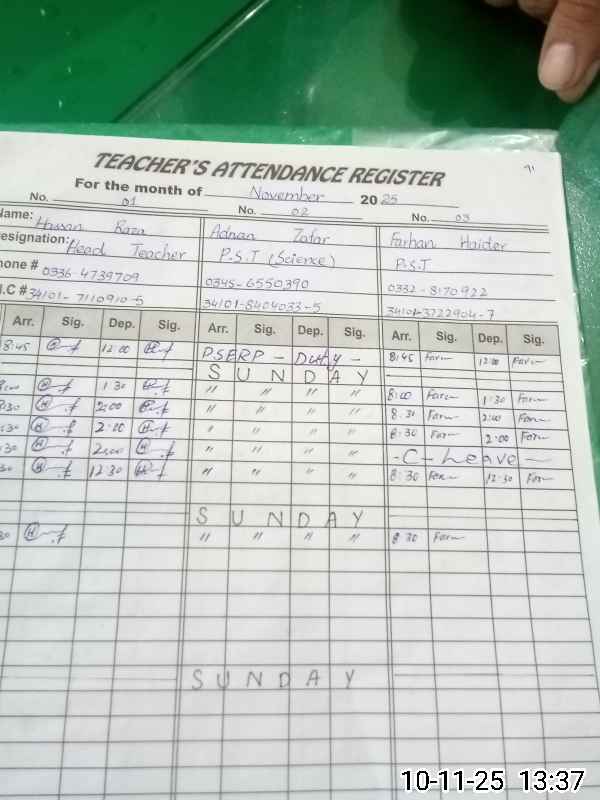 TEACHER'S ATTENDANCE REGISTER
For the month of November 2025
No. 01 No. 02 No. 03
Name: Hassan Raza Adnan Zafar Farhan Haider
esignation: Head Teacher P.S.T (Science) P.S.T
hone # 0336-4739709 0345-6550390 0332-8170922
I.C # 34101-7110910-5 34101-8404033-5 34101-3722904-7
Arr. Sig. Dep. Sig. Arr. Sig. Dep. Sig. Arr. Sig. Dep. Sig.
8:45 12:00 P.SERP - Duty - 8:45 12:00
SUNDAY
8:00 1:30 " " " " 8:00 1:30
8:30 2:00 " " " " 8:30 2:00
:30 2:00 " " " " 8:30 2:00
:30 2:00 " " " " -C- Leave -
30 12:30 " " " " 8:30 12:30
SUNDAY
30 " " " " 8:30
SUNDAY
10-11-25 13:37